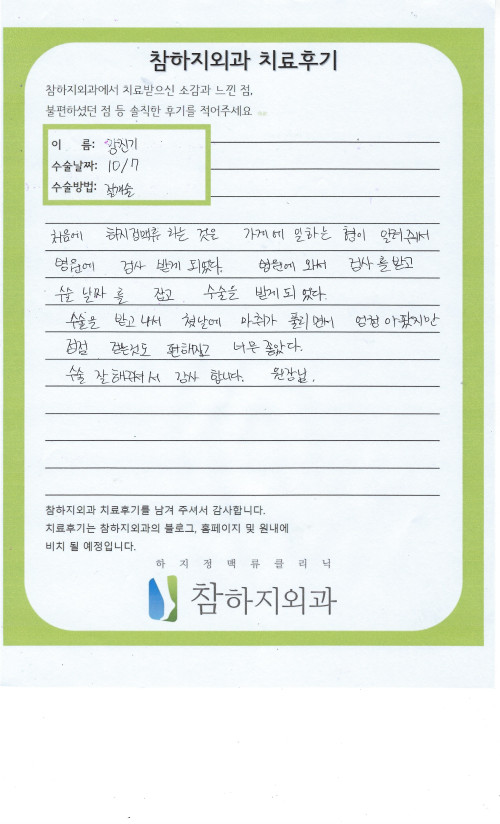 참하지외과 치료후기
참하지외과에서 치료받으신 소감과 느낀 점,
불편하셨던 점 등 솔직한 후기를 적어주세요
이 름: 강진기
수술날짜: 10/7
수술방법: 절개술
처음에 하지정맥류 라는 것을 가게에 일하는 형이 알려줘서
병원에 검사 받게 되었다. 병원에 와서 검사를 받고
수술 날짜를 잡고 수술을 받게 되었다.
수술을 받고 나서 첫날에 마취가 풀리면서 엄청 아팠지만
점점 걷는것도 편해지고 너무 좋았다.
수술 잘해주셔서 감사 합니다. 원장님.
참하지외과 치료후기를 남겨 주셔서 감사합니다.
치료후기는 참하지외과의 블로그, 홈페이지 및 원내에
비치 될 예정입니다.
하지정맥류클리닉
참하지외과